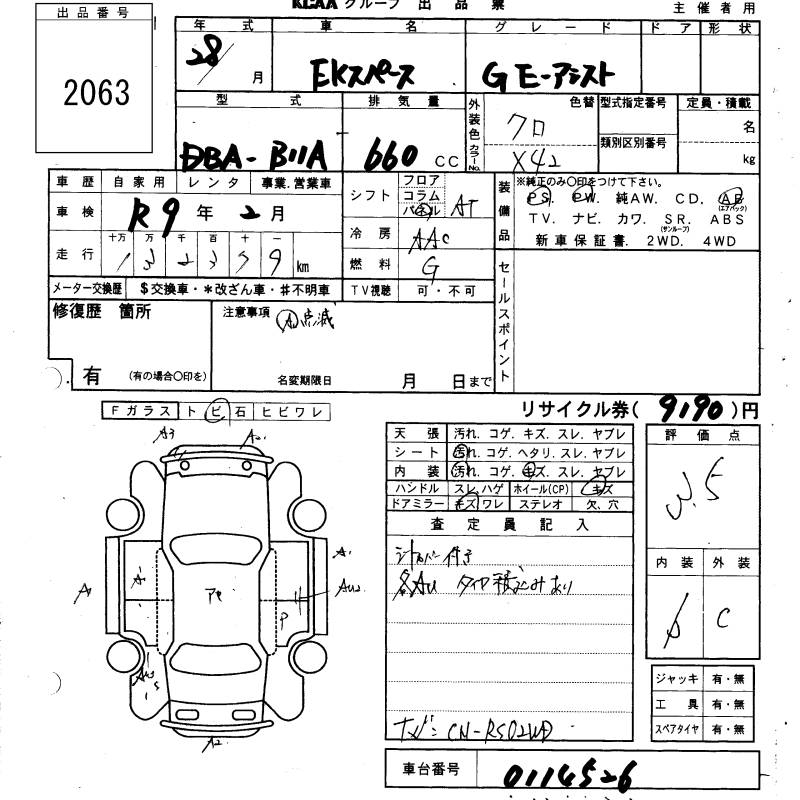 出品番号
2063
KCAA グループ 出品票
主催者用
年式 車名 グレード ドア 形状
28/ 月 EKスペース G E-アシスト
型式 排気量 外装色 カラーNo. 色替 型式指定番号 定員・積載
DBA-B11A 660 CC クロ X42 類別区別番号 名 kg
車歴 自家用 レンタ 事業.営業車
車検 R9年2月
走行 十万 万 千 百 十 一
km
シフト フロア コラム パネル AT
冷房 AAC
燃料 G
メーター交換歴 $交換車・*改ざん車・#不明車 TV視聴 可・不可
装備品 ※純正のみ〇印をつけて下さい。
PS. PW. 純AW. CD. AB (エアバック)
TV. ナビ. カワ. SR. (サンルーフ) ABS
新車保証書. 2WD. 4WD
セールスポイント
修復歴 箇所
有 (有の場合〇印を)
注意事項 点滅
名変期限日 月 日まで
リサイクル券( 9190 )円
Fガラス トビ石 ヒビワレ
A3 A2
A A A1 AU2
P
A2
天張 汚れ. コゲ. キズ. スレ. ヤブレ
シート 汚れ. コゲ. ヘタリ. スレ. ヤブレ
内装 汚れ. コゲ. キズ. スレ. ヤブレ
ハンドル スレ.ハゲ ホイール(CP) キズ
ドアミラー キズ.ワレ ステレオ 欠、穴
査定員記入
タイヤ積込みあり
ナビ: CN-RS02WD
評価点
3.5
内装 外装
C
ジャッキ 有・無
工具 有・無
スペアタイヤ 有・無
車台番号 0114526